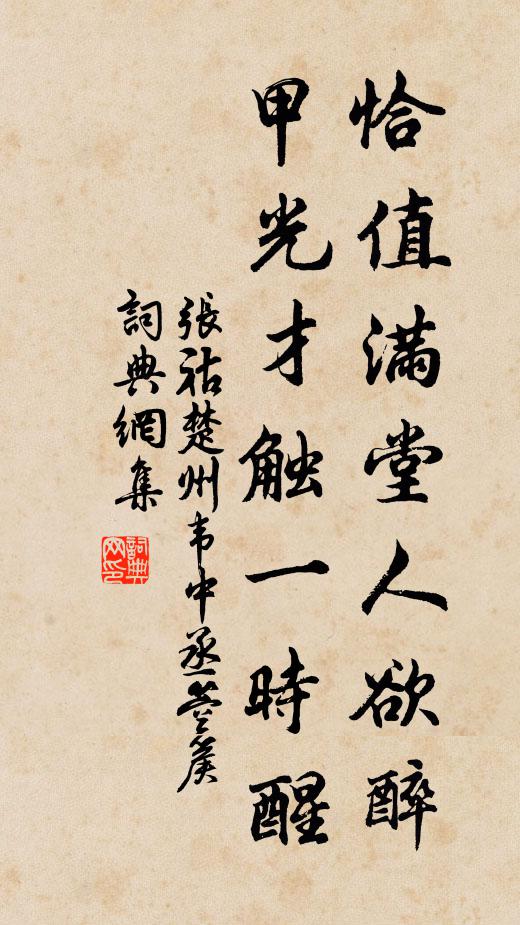 恰值满堂人欲醉
甲光才触一時醒
張祜楚州韦中丞箜篌
詞典網集
詞典網印